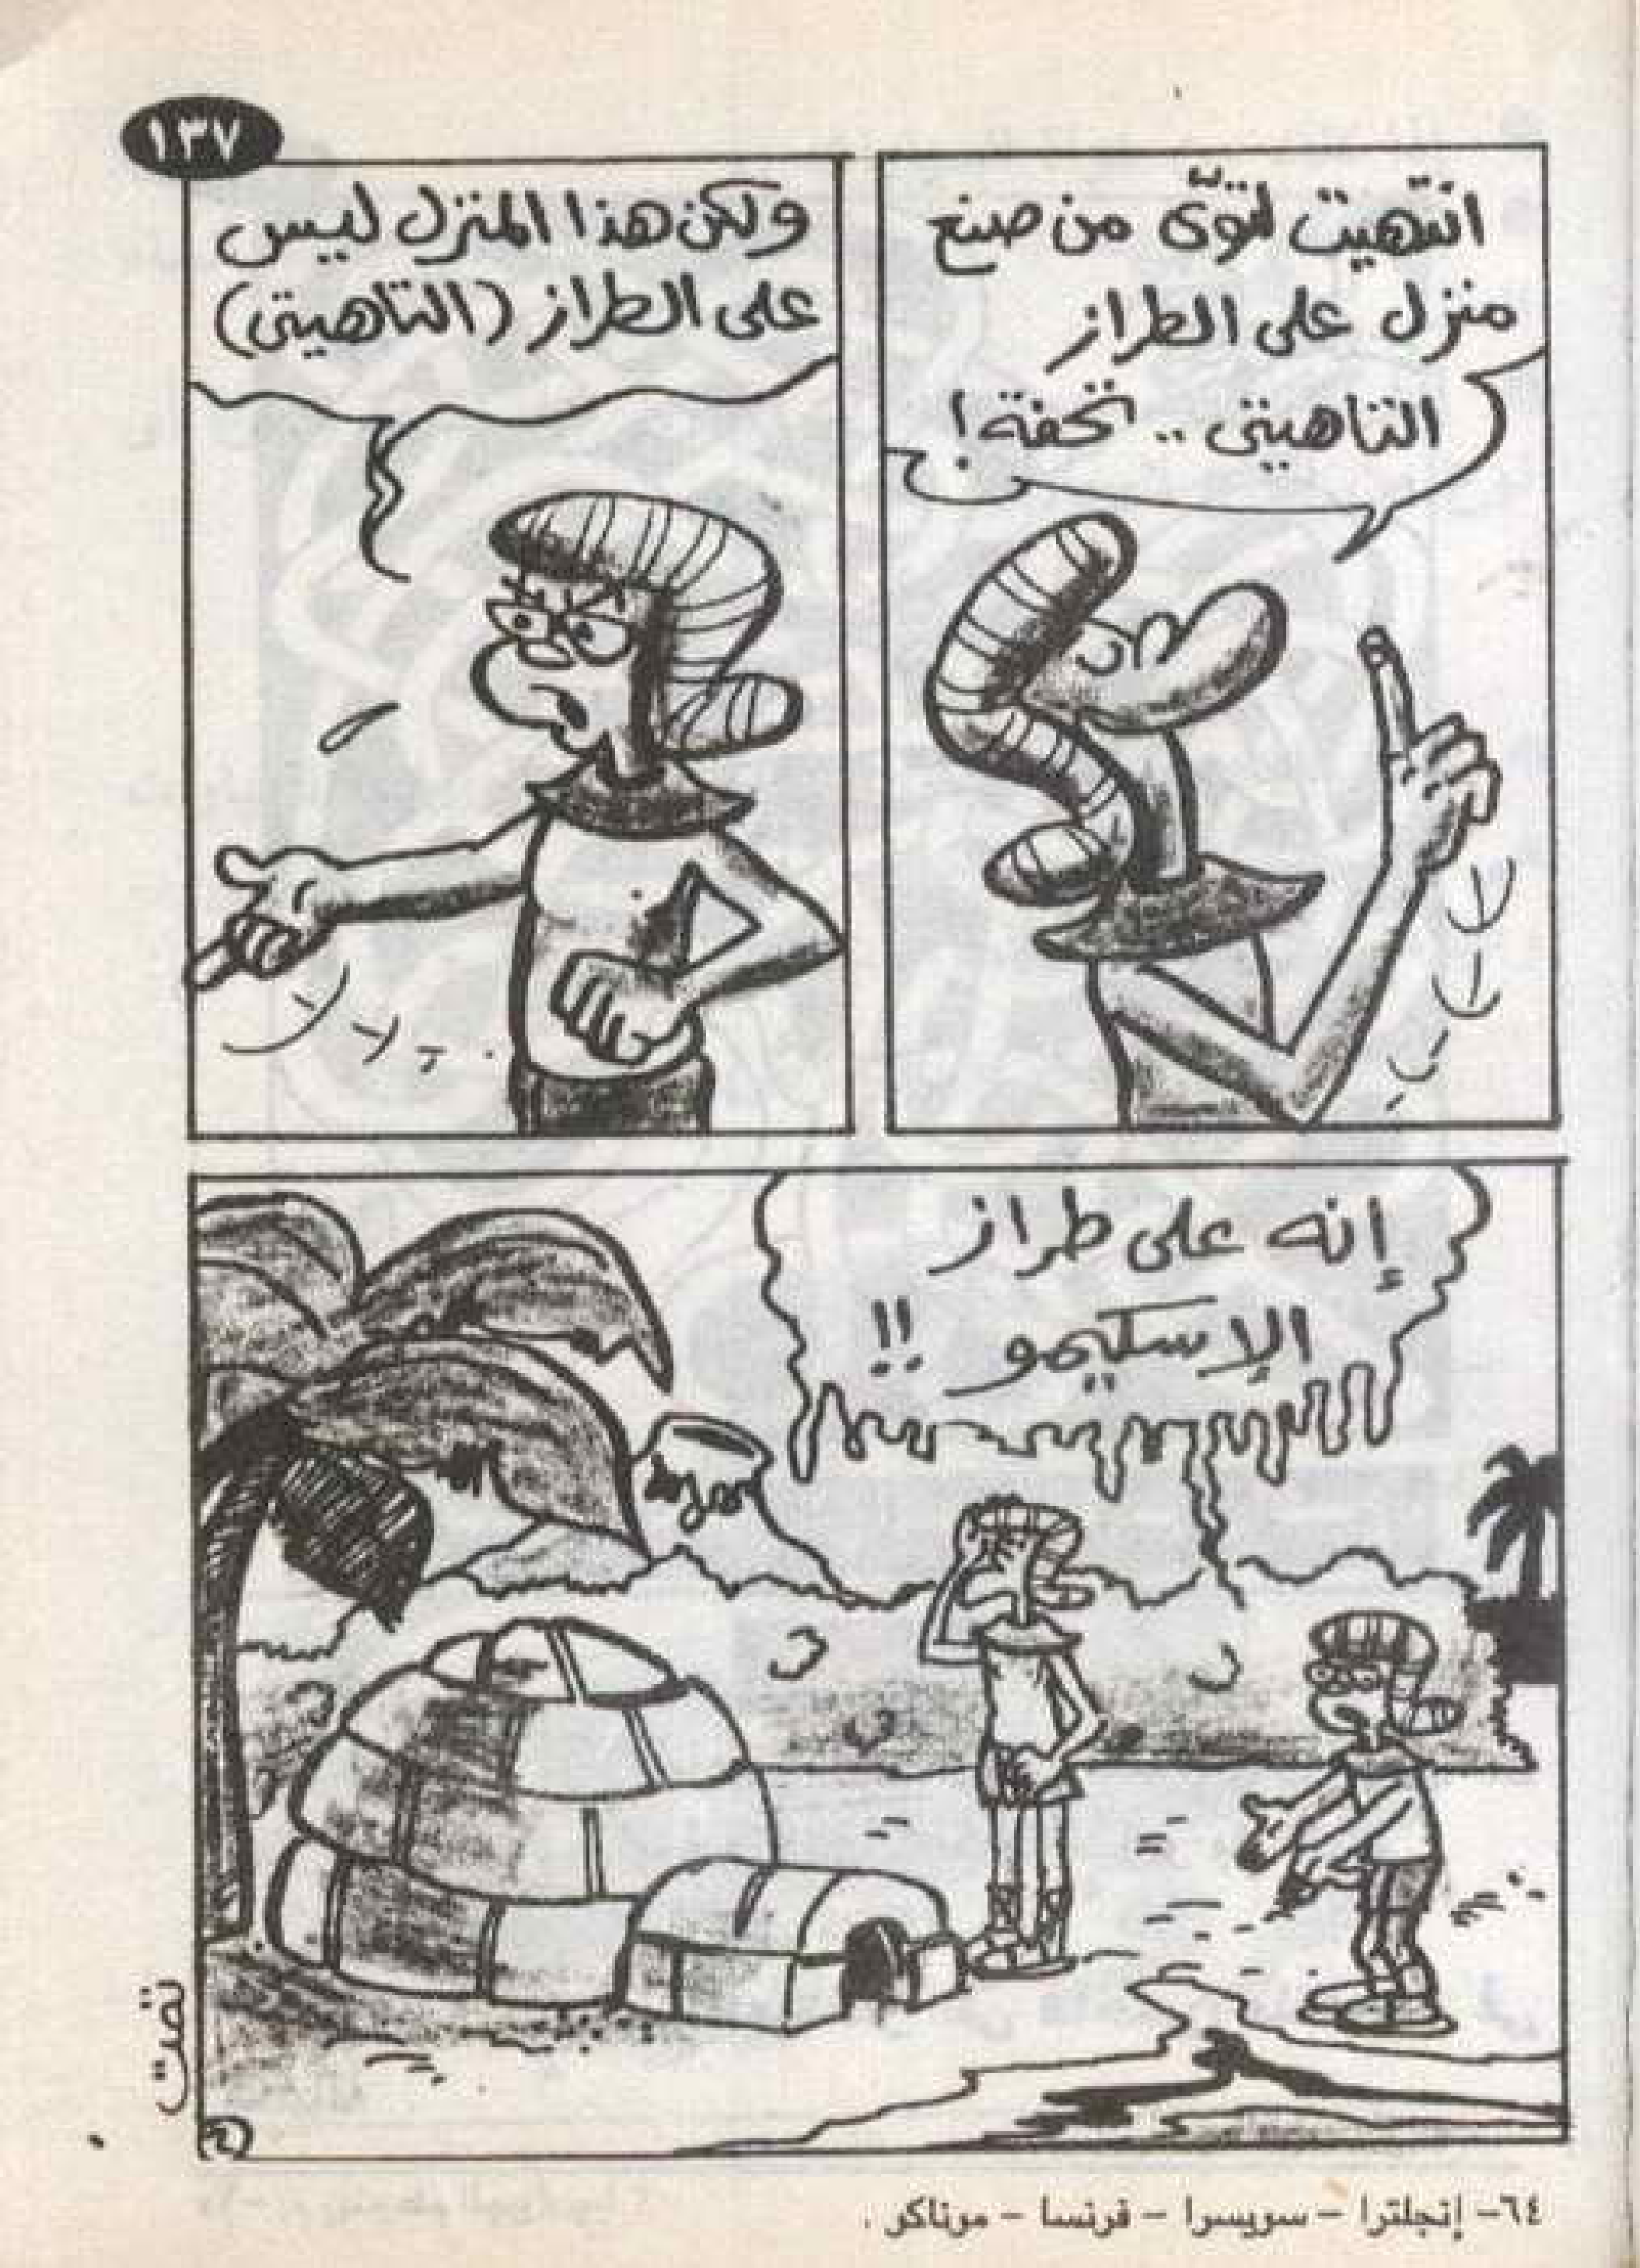 ١٣٧
انتهيت لتوّى من صنع
منزل على الطراز
التاهيتى .. تحفة !
ولكن هذا المنزل ليس
على الطراز (التاهيتى)
إنه على طراز
الإسكيمو !!
تمت
٦٤- إنجلترا - سويسرا - فرنسا - موناكو .